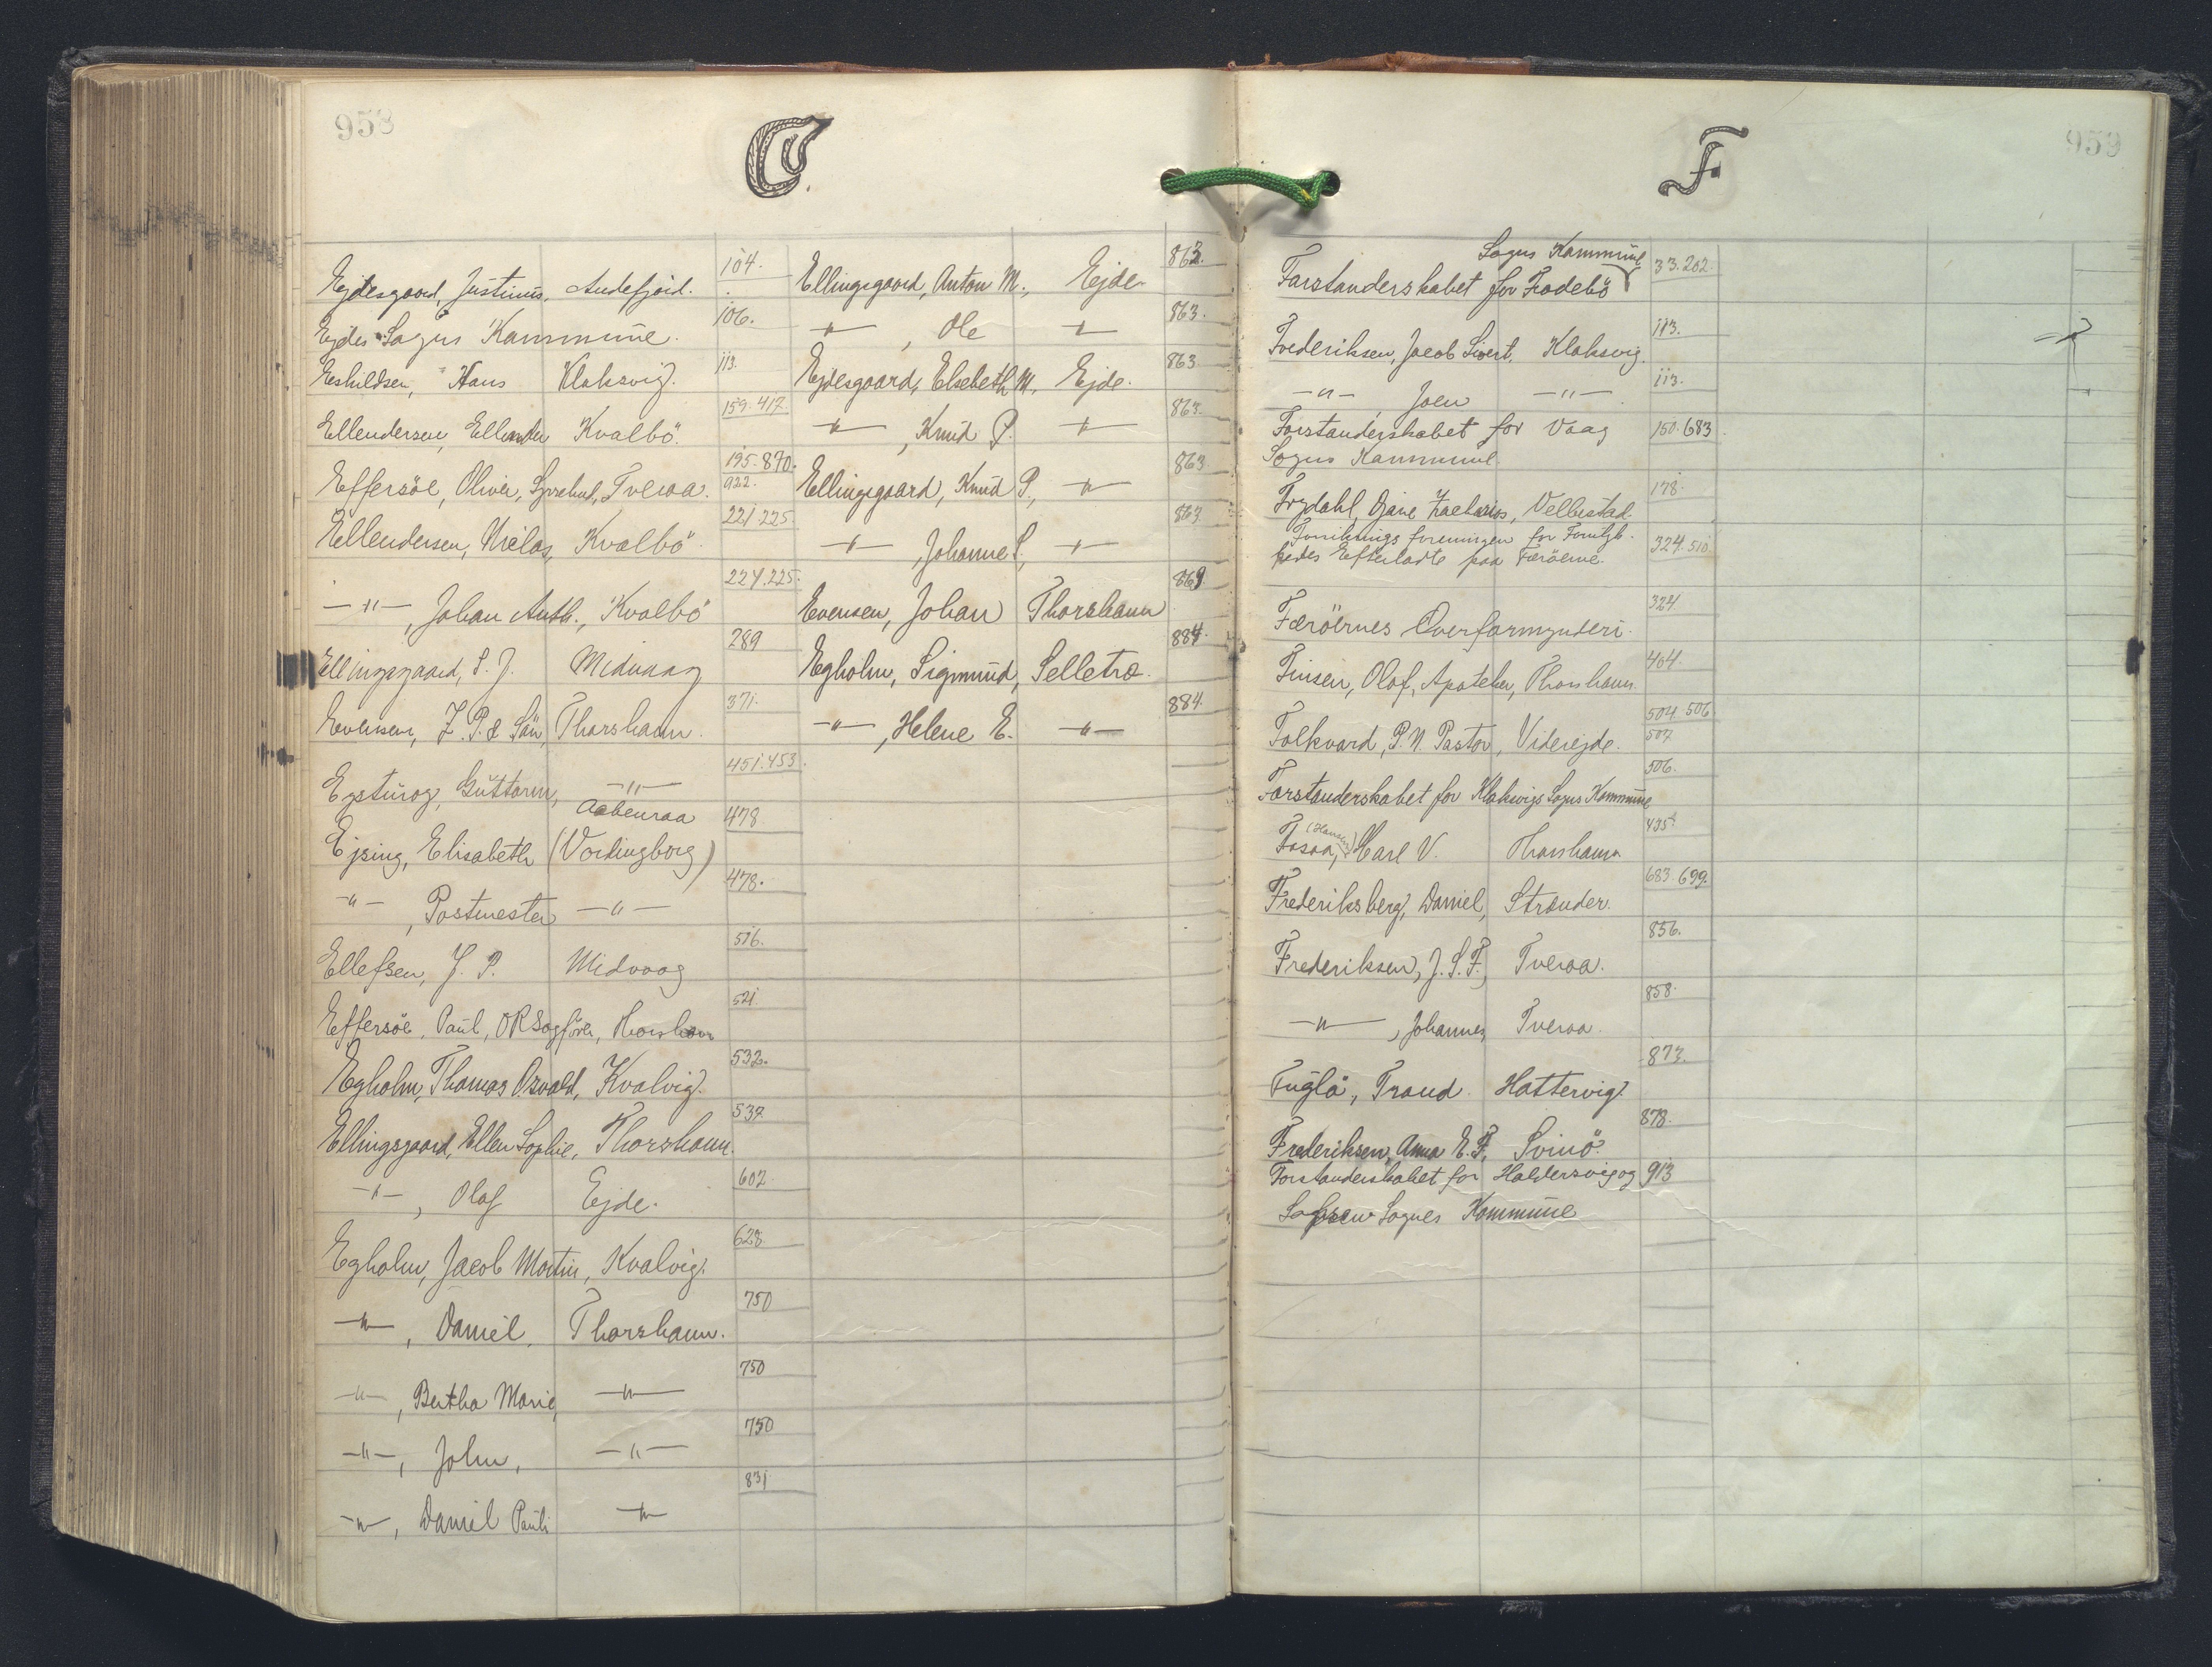 958
E.
Ejdesgaard, Justinus, Andefjord. 104.
Ejdes Sogns Kommune. 106.
Eskildsen, Hans Klaksvig. 113.
Ellendersen, Ellender Kvalbö. 159. 417.
Effersöe, Oliver, Tveraa. 195. 870. 922.
Ellendersen, Niclas, Kvalbö. 221. 225.
—"—, Johan Anth., Kvalbö 224. 225.
Ellingsgaard, S. J. Midvaag 289
Evensen, Z. P. & Sön, Thorshavn. 371.
Eysturog, Guttorm, —"— 451. 453.
Aabenraa
Ejsing, Elisabeth (Vordingborg) 478.
—"—, Postmester —"— 478.
Ellefsen, J. P. Midvaag 516.
Effersöe, Paul, ORSagförer, Thorshavn 521.
Egholm, Thomas Osvald, Kvalvig. 532.
Ellingsgaard, Ellen Sophie, Thorshavn. 537.
—"—, Olaf Ejde. 602.
Egholm, Jacob Martin, Kvalvig. 628.
—"—, Daniel, Thorshavn. 750
—"—, Bertha Marie, —"— 750
—"—, John, —"— 750
—"—, Daniel Pauli —"— 831
Ellingsgaard, Anton M., Ejde 863.
—"—, Ole —"— 863.
Ejdesgaard, Elsebeth M., Ejde. 863
—"—, Knud P. —"— 863.
Ellingsgaard, Knud P., —"— 863
—"—, Johanne S., —"— 863
Evensen, Johan Thorshavn 869.
Egholm, Sigmund, Selletræ. 884.
—"—, Helene E. —"— 884.
959
F
Sogns Kommune
Forstanderskabet for Frodebö 33. 202.
Frederiksen, Jacob Sivert, Klaksvig. 113.
—"— Joen —"— 113.
Forstanderskabet for Vaag 150. 683.
Sogns Kommune
Frydahl, Gjane Zacharias, Velbestad. 178.
Forsikrings foreningen for Forulyk-
kedes Efterladte paa Færöerne. 324. 510
Færöernes Overformynderi. 324
Finsen, Olaf, Apoteker, Thorshavn. 404.
Folkvard, P. N. Pastor, Viderejde. 504. 506. 507
Forstanderskabet for Klaksvigs Sogns Kommune 506.
(Hansen)
Fosaa, Carl V. Thorshavn 435.
Frederiksberg, Daniel, Strænder. 683. 699.
Frederiksen, J. S. F., Tveraa. 856.
—"—, Johannes, Tveraa. 858.
Fuglö, Traud Hattervig. 873.
Frederiksen, Anna E. F., Svinö. 878.
Forstanderskabet for Haldersvig og 913
Sognes Kommune